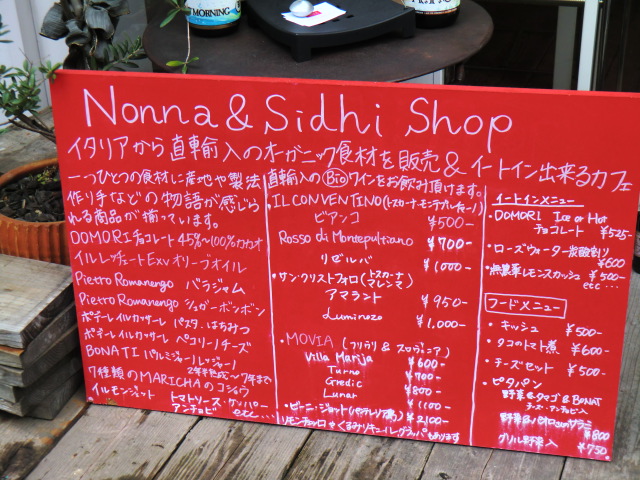 MORNING
Nonna & Sidhi Shop
イタリアから直輸入のオーガニック食材を販売 & イートイン出来るカフェ
一つひとつの食材に産地や製法
作り手などの物語が感じら
れる商品が揃っています。
DOMORIチョコレート45%~100%カカオ
イルレッチェート Exv オリーブオイル
Pietro Romanengo バラジャム
Pietro Romanengo シュガーボンボン
ポデーレイルカサーレ パスタ、はちみつ
ポデーレイルカサーレ ペコリーノチーズ
BONATI パルミジャーノレッジャーノ
7種類のMARICHAのコショウ
イルモンジェット トマトソース・ケッパー
アンチョビ etc...
直輸入のBioワインをお飲み頂けます。
・IL CONVENTINO(トスカーナ・モンテプルチャーノ)
ビアンコ ¥500-
Rosso di Montepulciano ¥700-
リゼルバ ¥1000-
・サン・クリストフォロ(トスカーナ マレンマ)
アマラント ¥950-
Luminoso ¥1,000-
・MOVIA (フリウリ & スロヴェニア)
Villa Marija ¥600-
Turno ¥700-
Gredic ¥800-
Lunar ¥1100-
¥2100-
リモンチェッロやくるみリキュール、グラッパもあります
イートインメニュー
・DOMORI Ice or Hot
チョコレート ¥525-
・ローズウォーター炭酸割り
¥600
・無農薬レモンスカッシュ ¥500-
etc...
フードメニュー
・キッシュ ¥500-
・タコのトマト煮 ¥600-
・チーズセット ¥500-
・ピタパン
野菜&タマゴ&BONAT
チーズ・アンチョビ入
¥800
グリル野菜入 ¥750